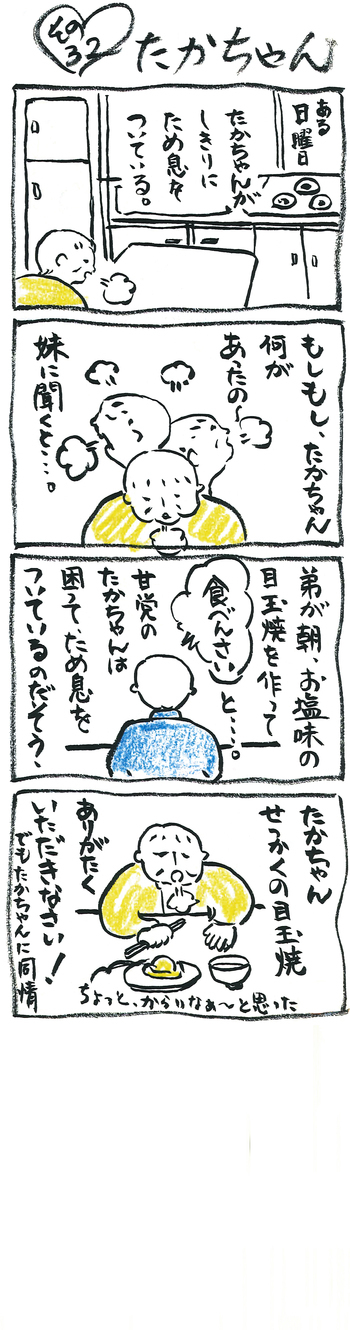 その
32
たかちゃん
ある
日曜日
たかちゃんが
しきりに
ため息を
ついている。
もしもし、たかちゃん
何が
あったの〜
妹に聞くと…。
弟が朝、お塩味の
目玉焼を作って
食べんさい
と…。
甘党の
たかちゃんは
困って、ため息を
ついているのだそう、
たかちゃん
せっかくの目玉焼
ありがたく
いただきなさい!
でもたかちゃんに同情
ちょっと、からいなぁ〜と思った